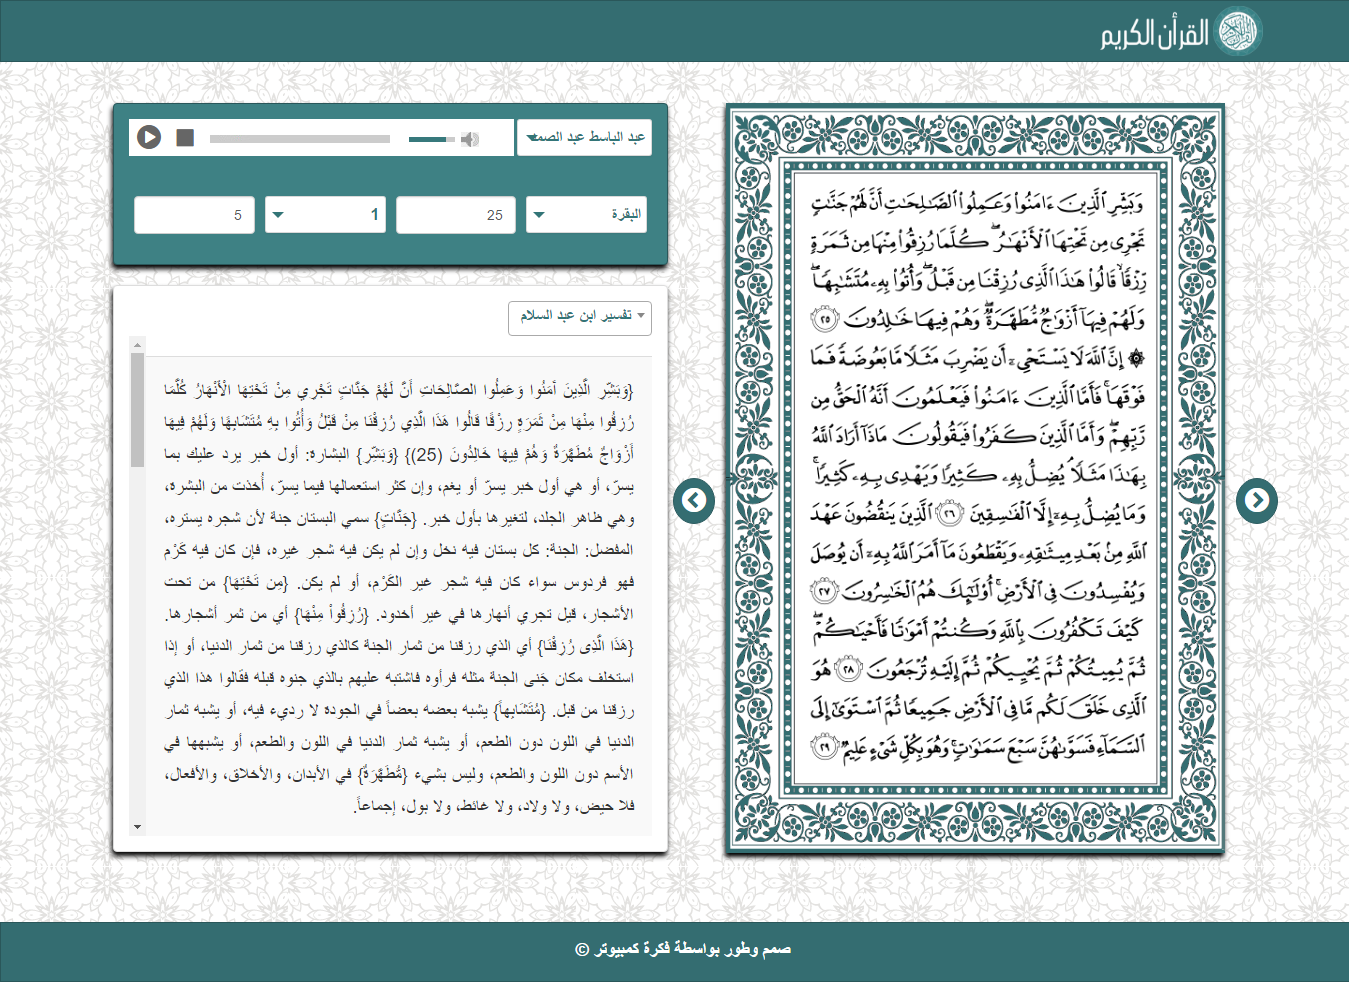 القرأن الكريم
عبد الباسط عبد الصمد
البقرة
25
1
5
وَبَشِّرِ ٱلَّذِينَ ءَامَنُوا۟ وَعَمِلُوا۟ ٱلصَّـٰلِحَـٰتِ أَنَّ لَهُمْ جَنَّـٰتٍ
تَجْرِى مِن تَحْتِهَا ٱلْأَنْهَـٰرُ ۖ كُلَّمَا رُزِقُوا۟ مِنْهَا مِن ثَمَرَةٍ
رِّزْقًا ۙ قَالُوا۟ هَـٰذَا ٱلَّذِى رُزِقْنَا مِن قَبْلُ ۖ وَأُتُوا۟ بِهِۦ مُتَشَـٰبِهًا ۖ
وَلَهُمْ فِيهَآ أَزْوَٰجٌ مُّطَهَّرَةٌ ۖ وَهُمْ فِيهَا خَـٰلِدُونَ ٢٥
۞ إِنَّ ٱللَّهَ لَا يَسْتَحْىِۦٓ أَن يَضْرِبَ مَثَلًا مَّا بَعُوضَةً فَمَا
فَوْقَهَا ۚ فَأَمَّا ٱلَّذِينَ ءَامَنُوا۟ فَيَعْلَمُونَ أَنَّهُ ٱلْحَقُّ مِن
رَّبِّهِمْ ۖ وَأَمَّا ٱلَّذِينَ كَفَرُوا۟ فَيَقُولُونَ مَاذَآ أَرَادَ ٱللَّهُ
بِهَـٰذَا مَثَلًا ۘ يُضِلُّ بِهِۦ كَثِيرًا وَيَهْدِى بِهِۦ كَثِيرًا ۚ
وَمَا يُضِلُّ بِهِۦٓ إِلَّا ٱلْفَـٰسِقِينَ ٢٦ ٱلَّذِينَ يَنقُضُونَ عَهْدَ
ٱللَّهِ مِنۢ بَعْدِ مِيثَـٰقِهِۦ وَيَقْطَعُونَ مَآ أَمَرَ ٱللَّهُ بِهِۦٓ أَن يُوصَلَ
وَيُفْسِدُونَ فِى ٱلْأَرْضِ ۚ أُو۟لَـٰٓئِكَ هُمُ ٱلْخَـٰسِرُونَ ٢٧
كَيْفَ تَكْفُرُونَ بِٱللَّهِ وَكُنتُمْ أَمْوَٰتًا فَأَحْيَـٰكُمْ ۖ
ثُمَّ يُمِيتُكُمْ ثُمَّ يُحْيِيكُمْ ثُمَّ إِلَيْهِ تُرْجَعُونَ ٢٨ هُوَ
ٱلَّذِى خَلَقَ لَكُم مَّا فِى ٱلْأَرْضِ جَمِيعًا ثُمَّ ٱسْتَوَىٰٓ إِلَى
ٱلسَّمَآءِ فَسَوَّىٰهُنَّ سَبْعَ سَمَـٰوَٰتٍ ۚ وَهُوَ بِكُلِّ شَىْءٍ عَلِيمٌ ٢٩
تفسير ابن عبد السلام
{وَبَشِّرِ الَّذِينَ آمَنُوا وَعَمِلُوا الصَّالِحَاتِ أَنَّ لَهُمْ جَنَّاتٍ تَجْرِي مِنْ تَحْتِهَا الْأَنْهَارُ كُلَّمَا
رُزِقُوا مِنْهَا مِنْ ثَمَرَةٍ رِزْقًا قَالُوا هَذَا الَّذِي رُزِقْنَا مِنْ قَبْلُ وَأُتُوا بِهِ مُتَشَابِهًا وَلَهُمْ فِيهَا
أَزْوَاجٌ مُطَهَّرَةٌ وَهُمْ فِيهَا خَالِدُونَ (25)} {وَبَشِّرِ} البشارة: أول خبر يرد عليك بما
يسرّ، أو هي أول خبر يسرّ أو يغم، وإن كثر استعمالها فيما يسرّ، أُخذت من البشرة،
وهي ظاهر الجلد، لتغيرها بأول خبر. {جَنَّاتٍ} سمي البستان جنة لأن شجره يستره،
المفضل: الجنة: كل بستان فيه نخل وإن لم يكن فيه شجر غيره، فإن كان فيه كَرْم
فهو فردوس سواء كان فيه شجر غير الكَرْم، أو لم يكن. {مِن تَحْتِهَا} من تحت
الأشجار، قيل تجري أنهارها في غير أخدود. {رُزِقُواْ مِنْهَا} أي من ثمر أشجارها.
{هَذَا الَّذِى رُزِقْنَا} أي الذي رزقنا من ثمار الجنة كالذي رزقنا من ثمار الدنيا، أو إذا
استخلف مكان جَنى الجنة مثله فرأوه فاشتبه عليهم بالذي جنوه قبله فقالوا هذا الذي
رزقنا من قبل. {مُتَشَابِهاً} يشبه بعضه بعضاً في الجودة لا رديء فيه، أو يشبه ثمار
الدنيا في اللون دون الطعم، أو يشبه ثمار الدنيا في اللون والطعم، أو يشبهها في
الأسم دون اللون والطعم، وليس بشيء {مُّطَهَّرَةٌ} في الأبدان، والأخلاق، والأفعال،
فلا حيض، ولا ولاد، ولا غائط، ولا بول، إجماعاً.
صمم وطور بواسطة فكرة كمبيوتر ©